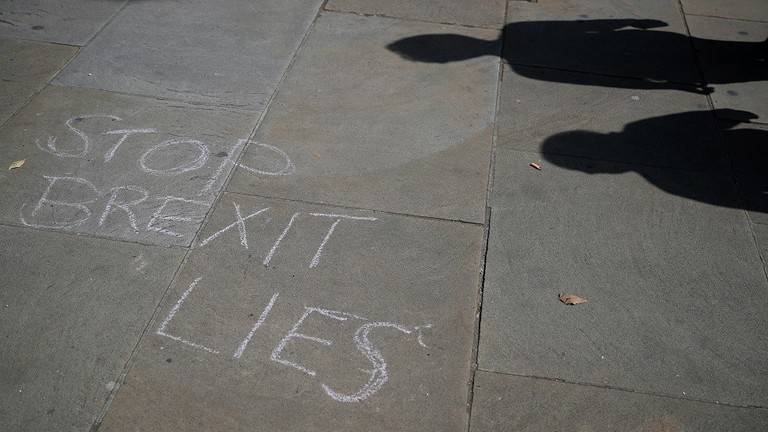 STOP
BREXIT
LIES